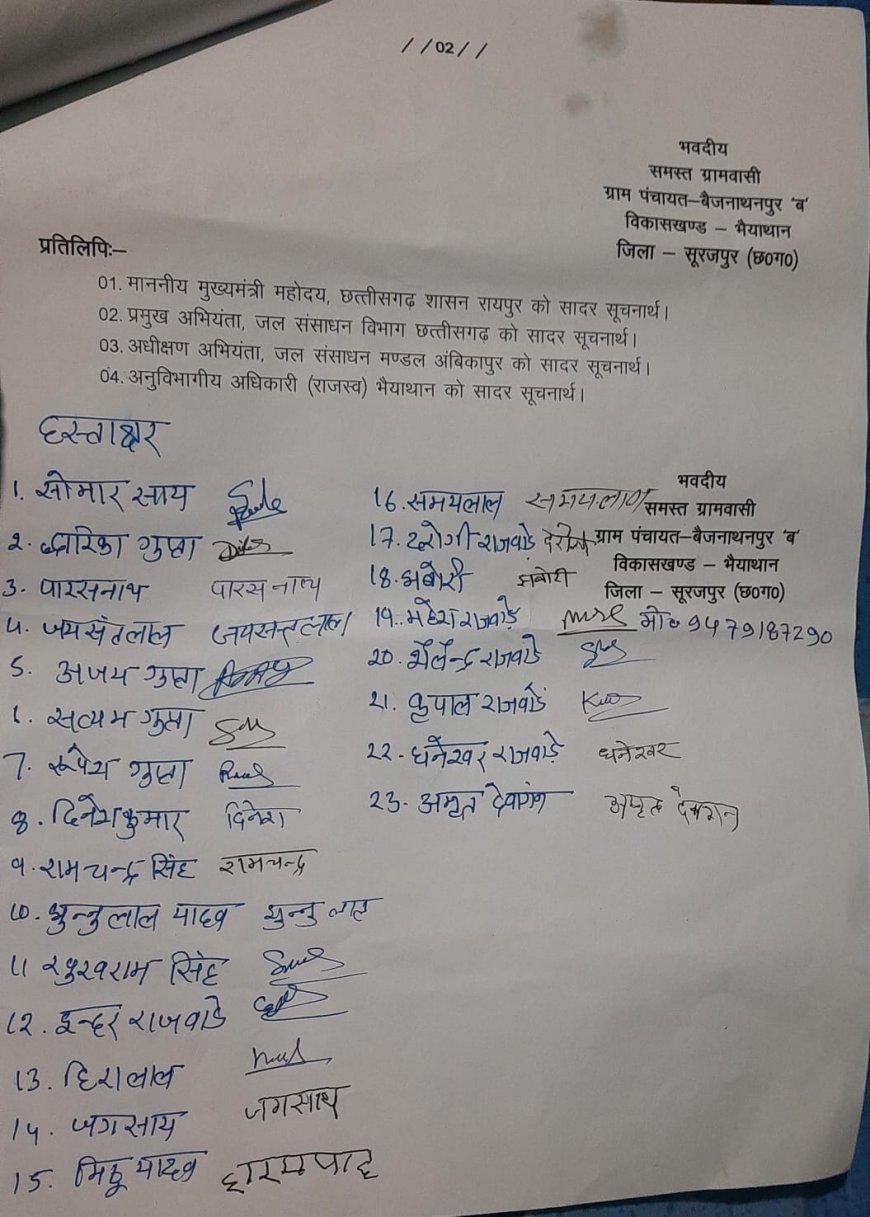 //02//
भवदीय
समस्त ग्रामवासी
ग्राम पंचायत–बैजनाथनपुर 'ब'
विकासखण्ड – भैयाथान
जिला – सूरजपुर (छ0ग0)
प्रतिलिपिः–
01. माननीय मुख्यमंत्री महोदय, छत्तीसगढ़ शासन रायपुर को सादर सूचनार्थ।
02. प्रमुख अभियंता, जल संसाधन विभाग छत्तीसगढ़ को सादर सूचनार्थ।
03. अधीक्षण अभियंता, जल संसाधन मण्डल अंबिकापुर को सादर सूचनार्थ।
04. अनुविभागीय अधिकारी (राजस्व) भैयाथान को सादर सूचनार्थ।
हस्ताक्षर
1. सोमार साय
2. द्वारिका गुप्ता
3. पारसनाथ पारसनाथ
4. जयसंतलाल जयसन्तलाल
5. अजय गुप्ता
6. सत्यम गुप्ता
7. रूपेश गुप्ता
8. दिनेश कुमार दिनेश
9. रामचन्द्र सिंह रामचन्द्र
10. मुन्नुलाल यादव मुन्नु लाल
11 सिंह
12. इन्दर राजवाडे
13. हिरालाल
14. जगसाय जगसाय
15. यादव
भवदीय
समस्त ग्रामवासी
ग्राम पंचायत–बैजनाथनपुर 'ब'
विकासखण्ड – भैयाथान
जिला – सूरजपुर (छ0ग0)
16. समयलाल समयलाल
17. राजवाडे
18.
19. महेश राजवाडे मो0 9479187290
20. शैलेन्द्र राजवाडे
21. कृपाल राजवाडे
22. धनेश्वर राजवाडे़ धनेश्वर
23. अमृत देवांगन अमृत देवांगन